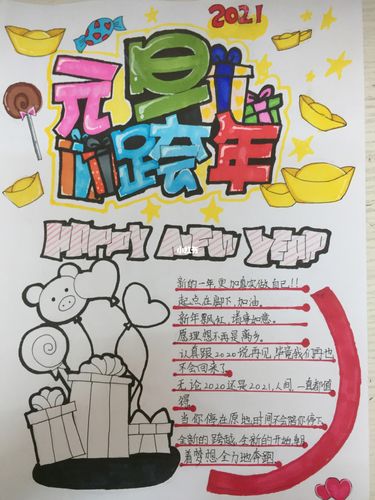 2021
元旦
跨年
HAPPY NEW YEAR
新的一年更加真实做自己!!
起点在脚下,加油。
新年飘红,诸事如意。
愿理想不再是离乡。
认真跟2020说再见,毕竟我们再也
不会回来了
无论2020还是2021,人间一直都值
得
当你停在原地时间不会陪你停下
全新的跨越,全新的开始,朝
着梦想全力地奔跑